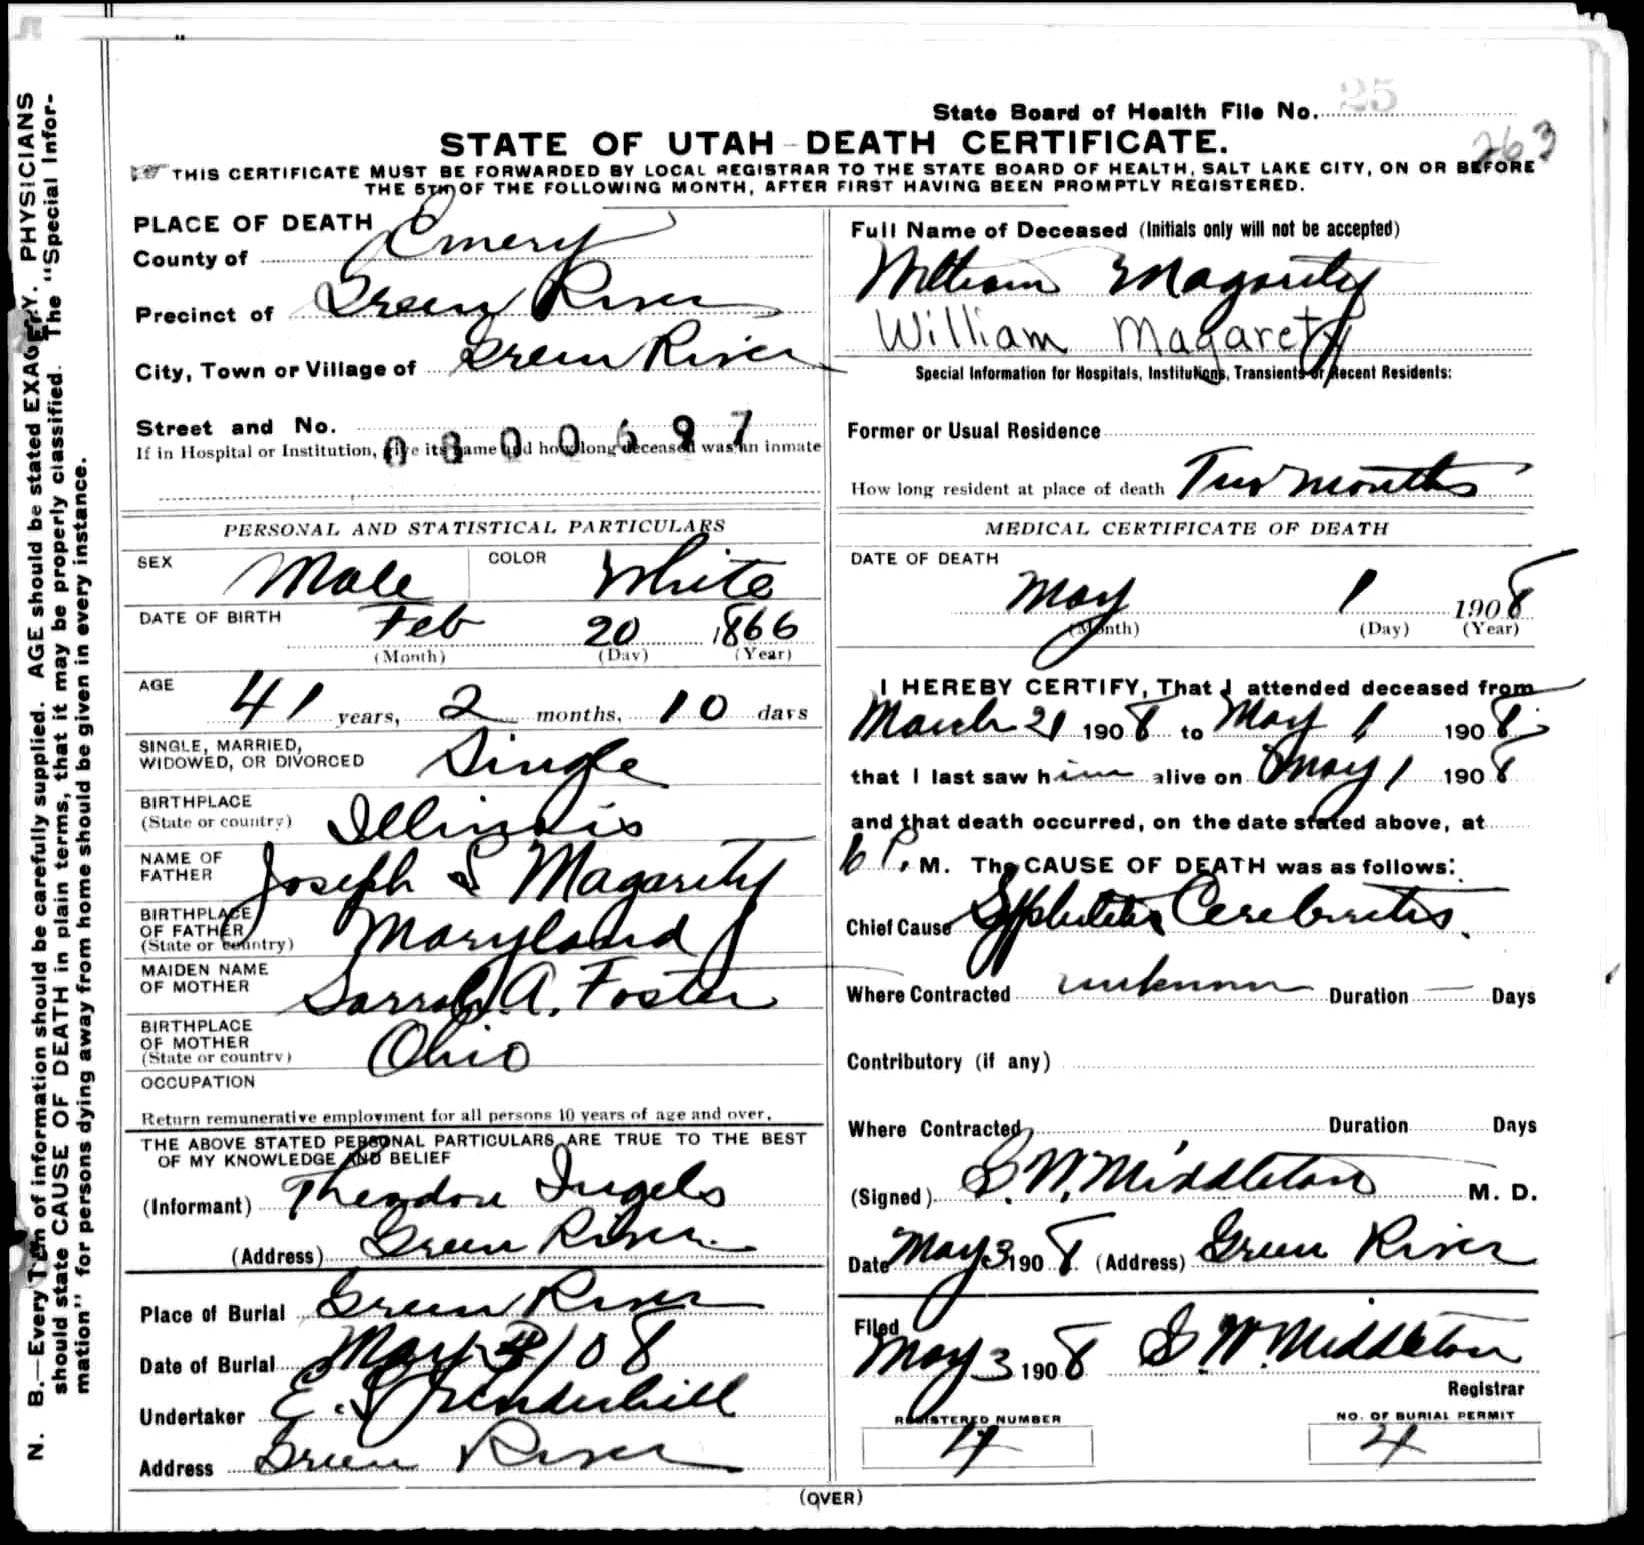 N. B.—Every item of information should be carefully supplied. AGE should be stated EXACTLY. PHYSICIANS
should state CAUSE OF DEATH in plain terms, that it may be properly classified. The "Special Infor-
mation" for persons dying away from home should be given in every instance.
State Board of Health File No. 25
263
STATE OF UTAH DEATH CERTIFICATE.
THIS CERTIFICATE MUST BE FORWARDED BY LOCAL REGISTRAR TO THE STATE BOARD OF HEALTH, SALT LAKE CITY, ON OR BEFORE
THE 5TH OF THE FOLLOWING MONTH, AFTER FIRST HAVING BEEN PROMPTLY REGISTERED.
PLACE OF DEATH
County of Emery
Precinct of Green River
City, Town or Village of Green River
Street and No.
0800697
If in Hospital or Institution, give its name and how long deceased was an inmate
PERSONAL AND STATISTICAL PARTICULARS
SEX Male COLOR White
DATE OF BIRTH Feb 20 1866
(Month) (Day) (Year)
AGE 41 years, 2 months, 10 days
SINGLE, MARRIED,
WIDOWED, OR DIVORCED Single
BIRTHPLACE
(State or country) Illinois
NAME OF
FATHER Joseph S Magarity
BIRTHPLACE
OF FATHER
(State or country) Maryland
MAIDEN NAME
OF MOTHER Sarrah A. Foster
BIRTHPLACE
OF MOTHER
(State or country) Ohio
OCCUPATION
Return remunerative employment for all persons 10 years of age and over.
THE ABOVE STATED PERSONAL PARTICULARS ARE TRUE TO THE BEST
OF MY KNOWLEDGE AND BELIEF
(Informant) Theodore Ingels
(Address) Green River
Place of Burial Green River
Date of Burial May 3/08
Undertaker E.
Address Green River
Full Name of Deceased (Initials only will not be accepted)
William Magarity
William Magarety
Special Information for Hospitals, Institutions, Transients or Recent Residents:
Former or Usual Residence
How long resident at place of death Two months
MEDICAL CERTIFICATE OF DEATH
DATE OF DEATH
May 1 1908
(Month) (Day) (Year)
I HEREBY CERTIFY, That I attended deceased from
March 21 1908 to May 1 1908
that I last saw him alive on May 1 1908
and that death occurred, on the date stated above, at
6 P. M. The CAUSE OF DEATH was as follows:
Chief Cause Cerebritis.
Where Contracted unknown Duration — Days
Contributory (if any)
Where Contracted Duration Days
(Signed) G. W. Middleton M. D.
Date May 3 1908 (Address) Green River
Filed
May 3 1908 G. W. Middleton
Registrar
REGISTERED NUMBER
4
NO. OF BURIAL PERMIT
4
(OVER)